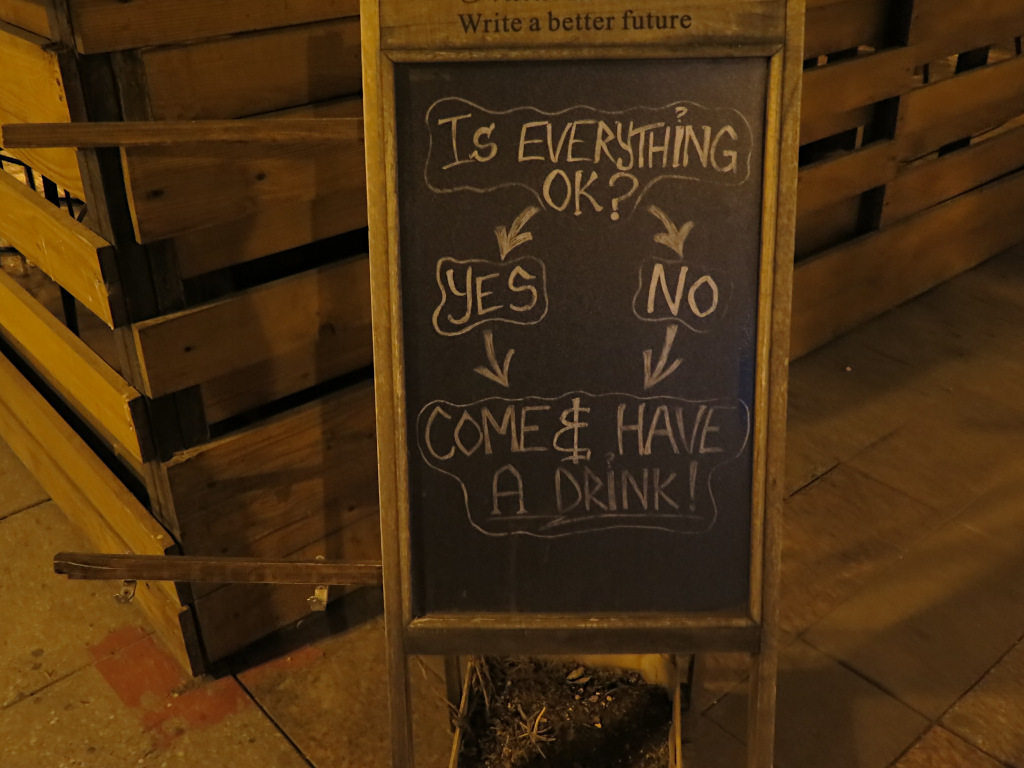 Write a better future
IS EVERYTHING
OK?
YES NO
COME & HAVE
A DRINK!